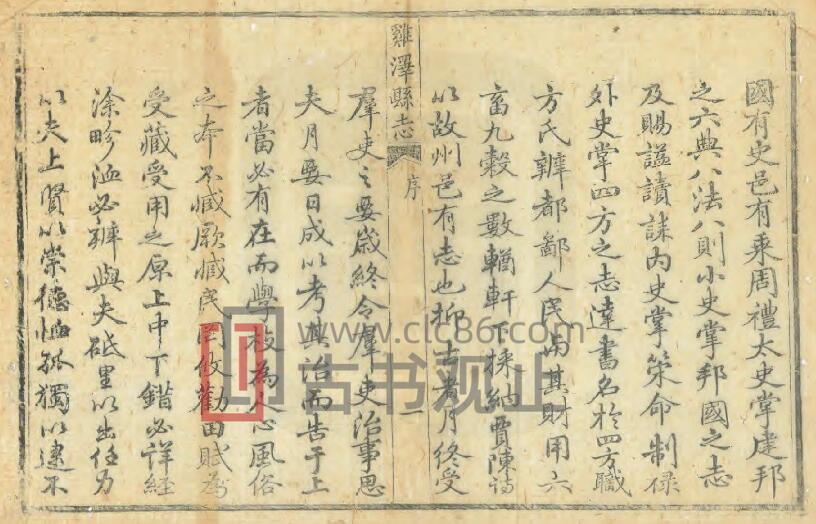 國有史邑有乘周禮太史掌建邦
之六典八法八則小史掌邦國之志
及賜諡讀誄內史掌策命制祿
外史掌四方之志達書名於四方職
方氏辨都鄙人民與其財用六
畜九穀之數輶軒下採納賈陳詩
以故州邑有志也抑古者月終受
雞澤縣志
序
一
羣吏之要歲終令羣吏治事思
夫月要日成以考其治而告于上
者當必有在而學校為人心風俗
之本不臧厥臧民罔攸勸田賦為
受藏受用之原上中下錯必詳經
涂畛洫必辨與夫砥里以出任力
以夫上賢以崇德恤孤獨以逮不
www.clc86.com
古书观止